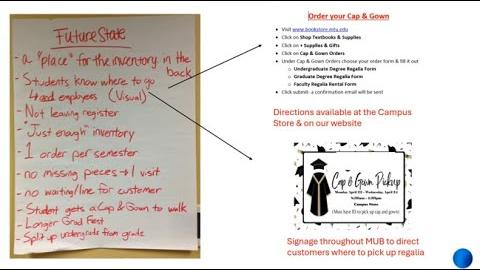 Future State
- a "place" for the inventory in the back
- Students know where to go
and employees (Visual)
- Not leaving register
- "Just enough" inventory
- 1 order per semester
- no missing pieces → 1 visit
- no waiting/line for customer
- Student gets a Cap & Gown to walk
- Longer Grad Fest
- Split up undergrads from grads
Order your Cap & Gown
• Visit www.bookstore.mtu.edu
• Click on Shop Textbooks & Supplies
• Click on + Supplies & Gifts
• Click on Cap & Gown Orders
• Under Cap & Gown Orders choose your order form & fill it out
o Undergraduate Degree Regalia Form
o Graduate Degree Regalia Form
o Faculty Regalia Rental Form
• Click submit- a confirmation email will be sent
Directions available at the Campus
Store & on our website
Cap & Gown Pickup
Campus Store
(Must have ID to pick up cap and gown)
Signage throughout MUB to direct
customers where to pick up regalia